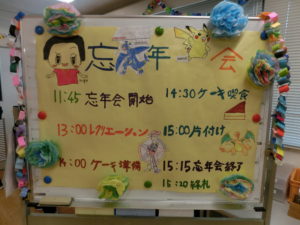 忘年会
11:45 忘年会 開始
13:00 レクリエーション
14:00 ケーキ 準備
14:30 ケーキ 喫食
15:00 片付け
15:15 忘年会 終了
15:20 終礼